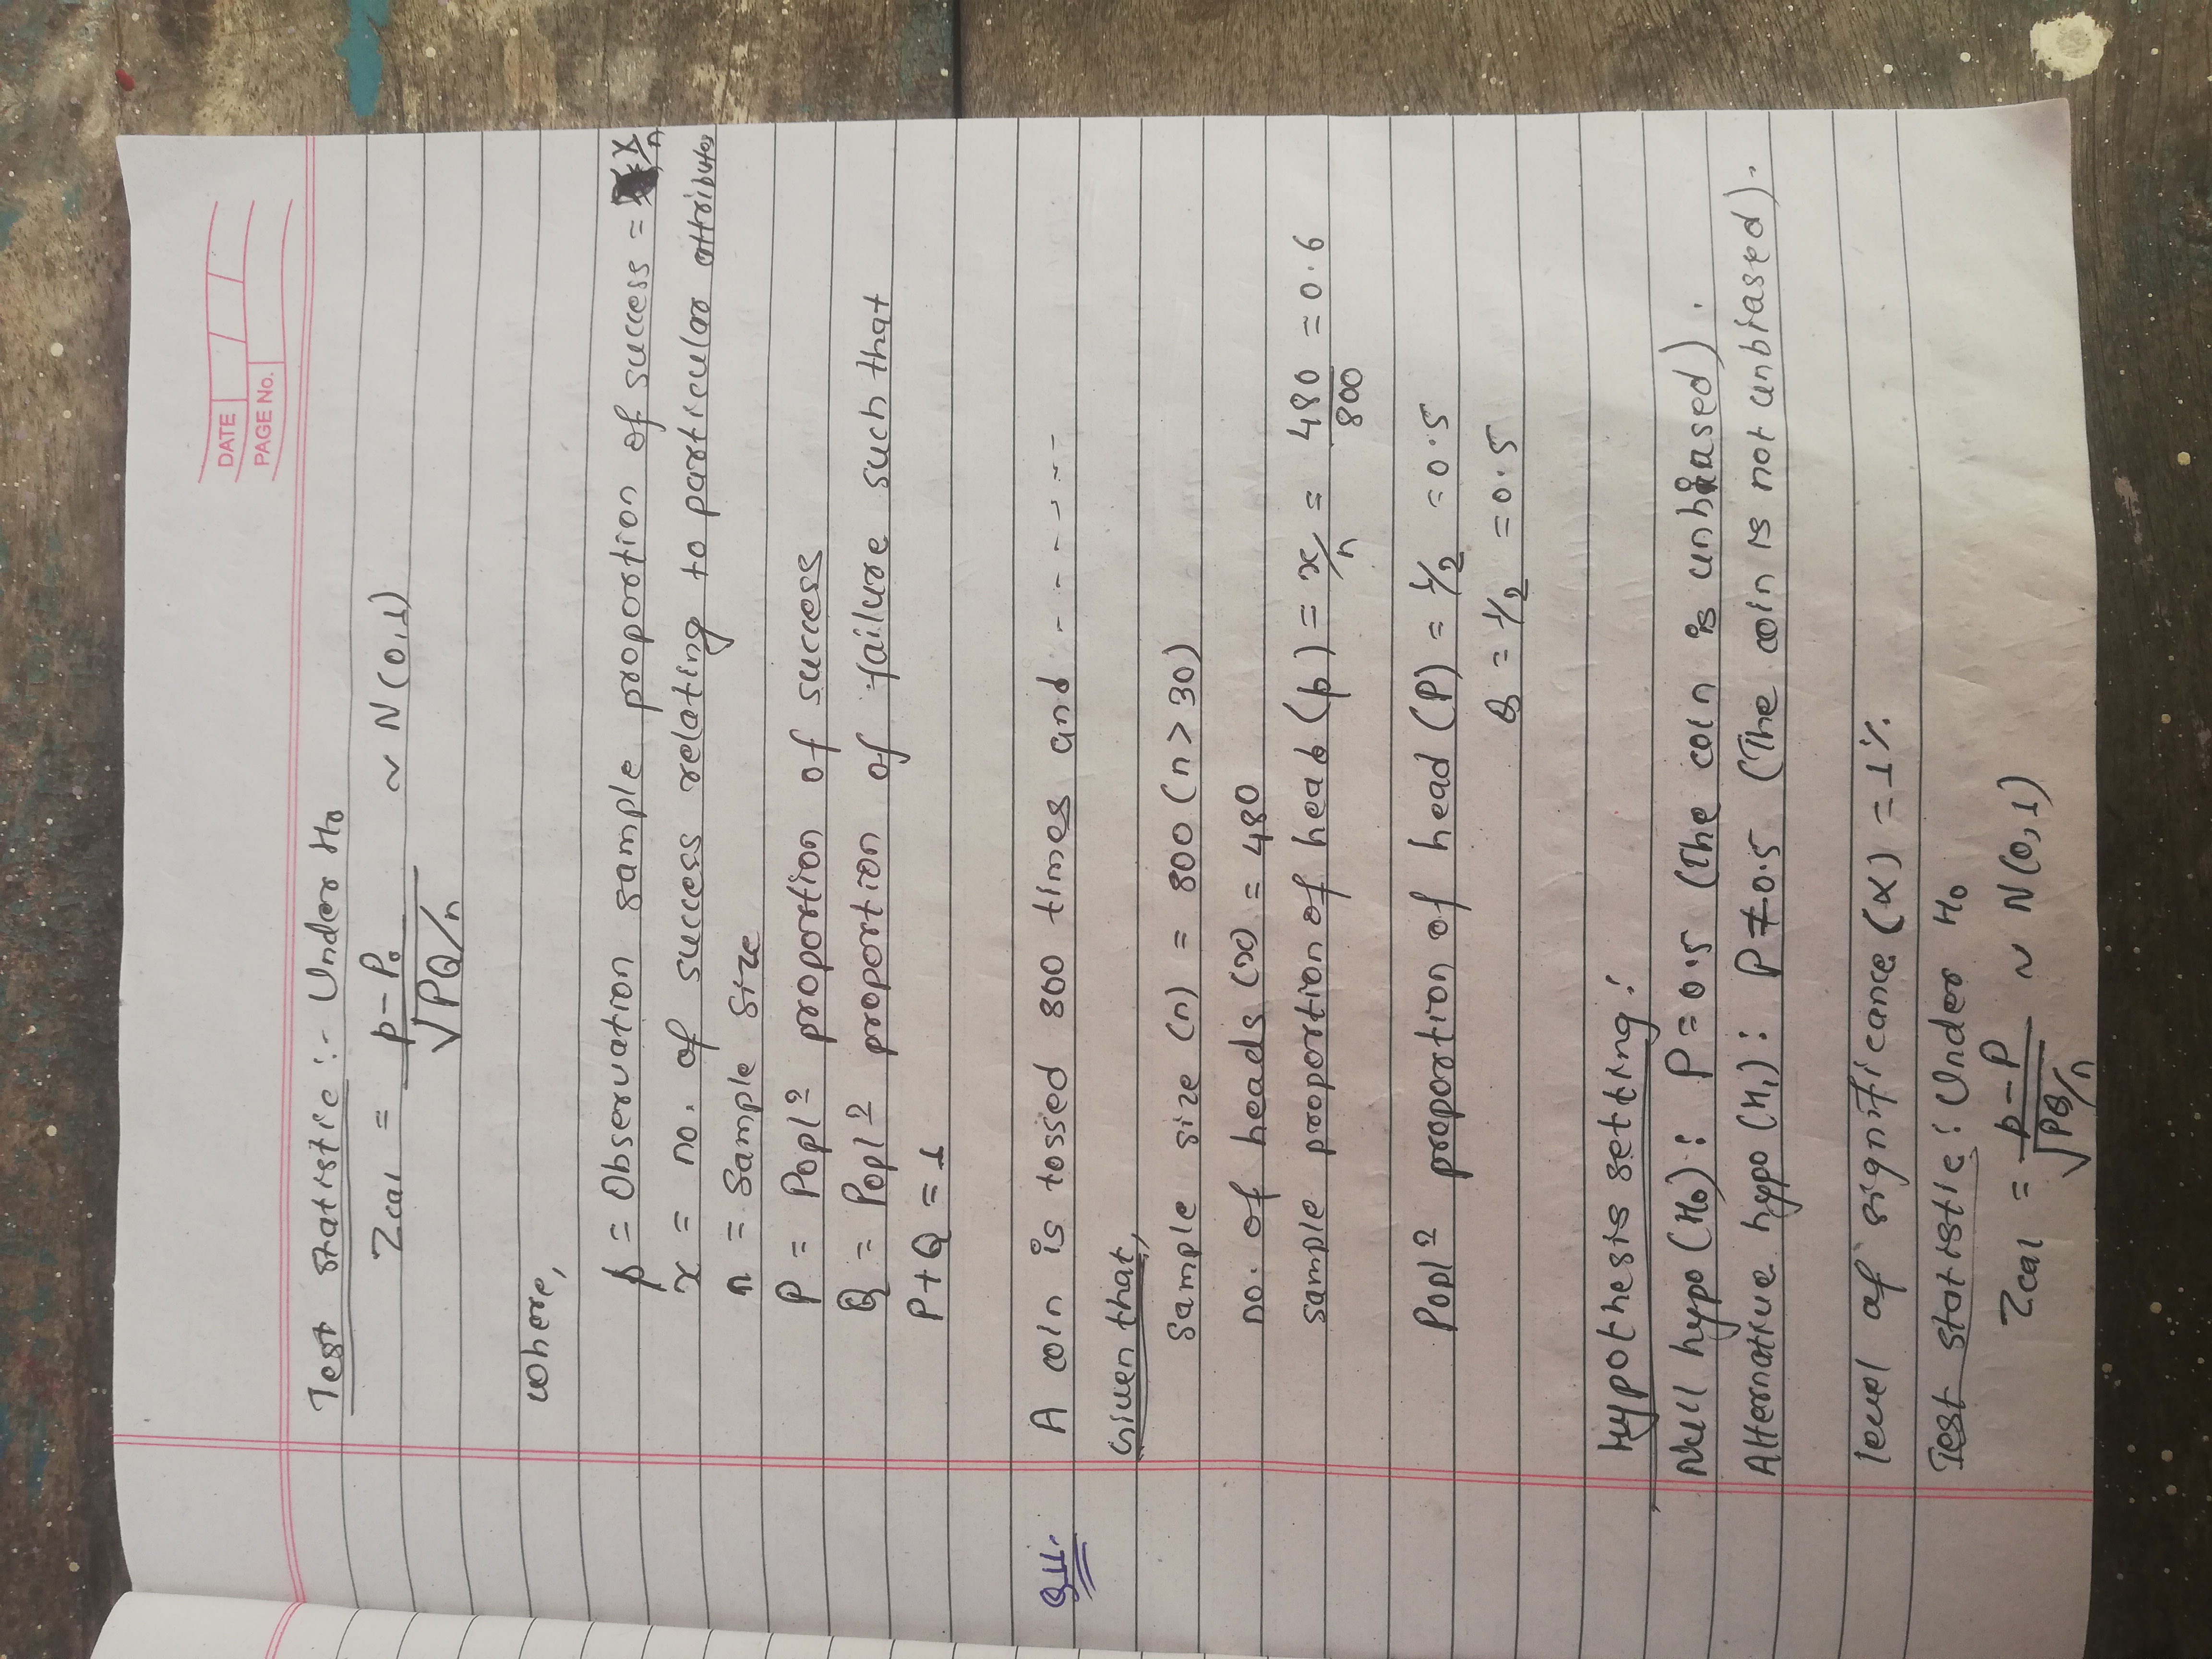 DATE
PAGE No.
Test statistic :- Under H₀
Zcal = p - P₀ / √PQ/n ~ N(0,1)
where,
p = Observation sample proportion of success = x/n
x = no. of success relating to particular attributes
n = Sample size
P = Popl? proportion of success
Q = Popl? proportion of failure such that
P + Q = 1
Q11. A coin is tossed 800 times and - - - - - - -
Given that,
Sample size (n) = 800 (n > 30)
no. of heads (x) = 480
sample proportion of head (p) = x/n = 480/800 = 0.6
Popl? proportion of head (P) = 1/2 = 0.5
Q = 1/2 = 0.5
Hypothesis setting :
Null hypo (H₀) : P = 0.5 (The coin is unbiased).
Alternative hypo (H₁) : P ≠ 0.5 (The coin is not unbiased).
level of significance (α) = 1%
Test statistic : Under H₀
Zcal = p - P / √PQ/n ~ N(0,1)